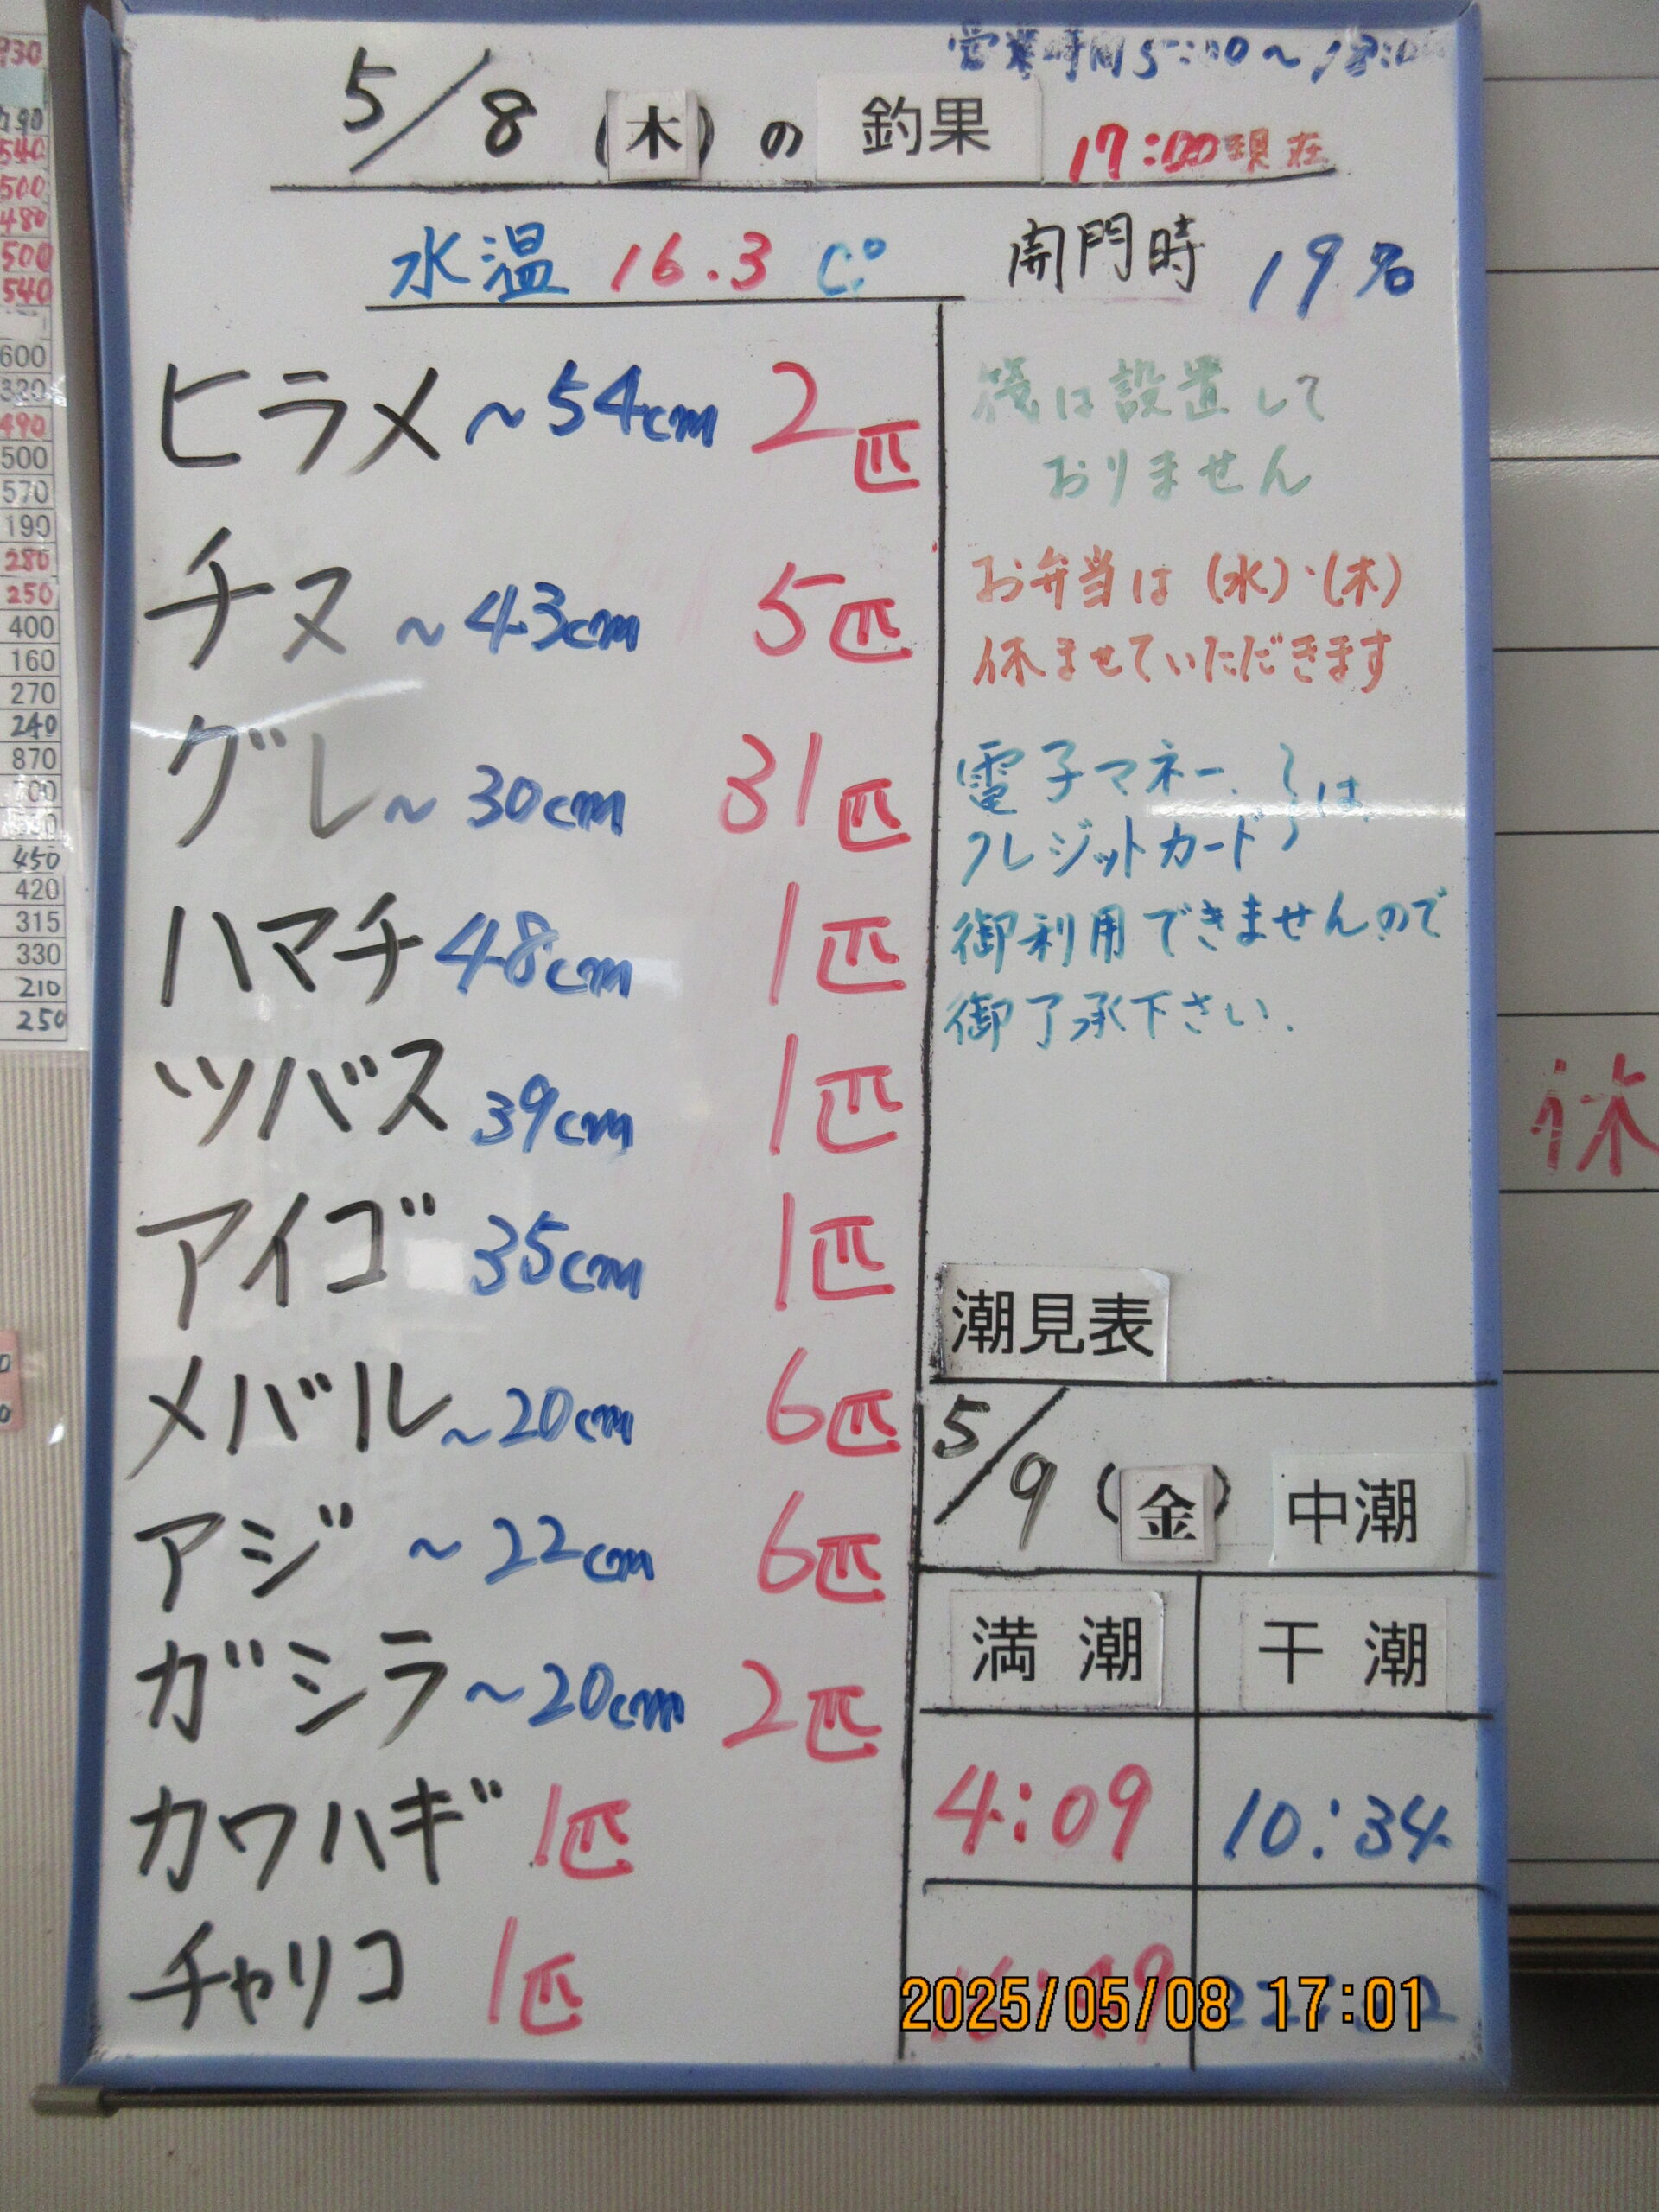 営業時間5:00~18:00
5/8(木)の 釣果 17:00現在
水温 16.3 C°
開門時 19名
ヒラメ ~54cm 2匹
チヌ ~43cm 5匹
グレ~ 30cm 31匹
ハマチ 48cm 1匹
ツバス 39cm 1匹
アイゴ 35cm 1匹
メバル ~20cm 6匹
アジ ~22cm 6匹
ガシラ ~20cm 2匹
カワハギ 1匹
チャリコ 1匹
筏は設置して
おりません
お弁当は(水)・(木)
休ませていただきます
電子マネー、
クレジットカード は
御利用できませんので
御了承下さい.
潮見表
5/9(金) 中潮
満潮 干潮
4:09 10:34
2025/05/08 17:01
休
930
190
540
500
480
500
540
600
320
490
500
570
190
280
250
400
160
270
240
870
700
450
420
315
330
210
250